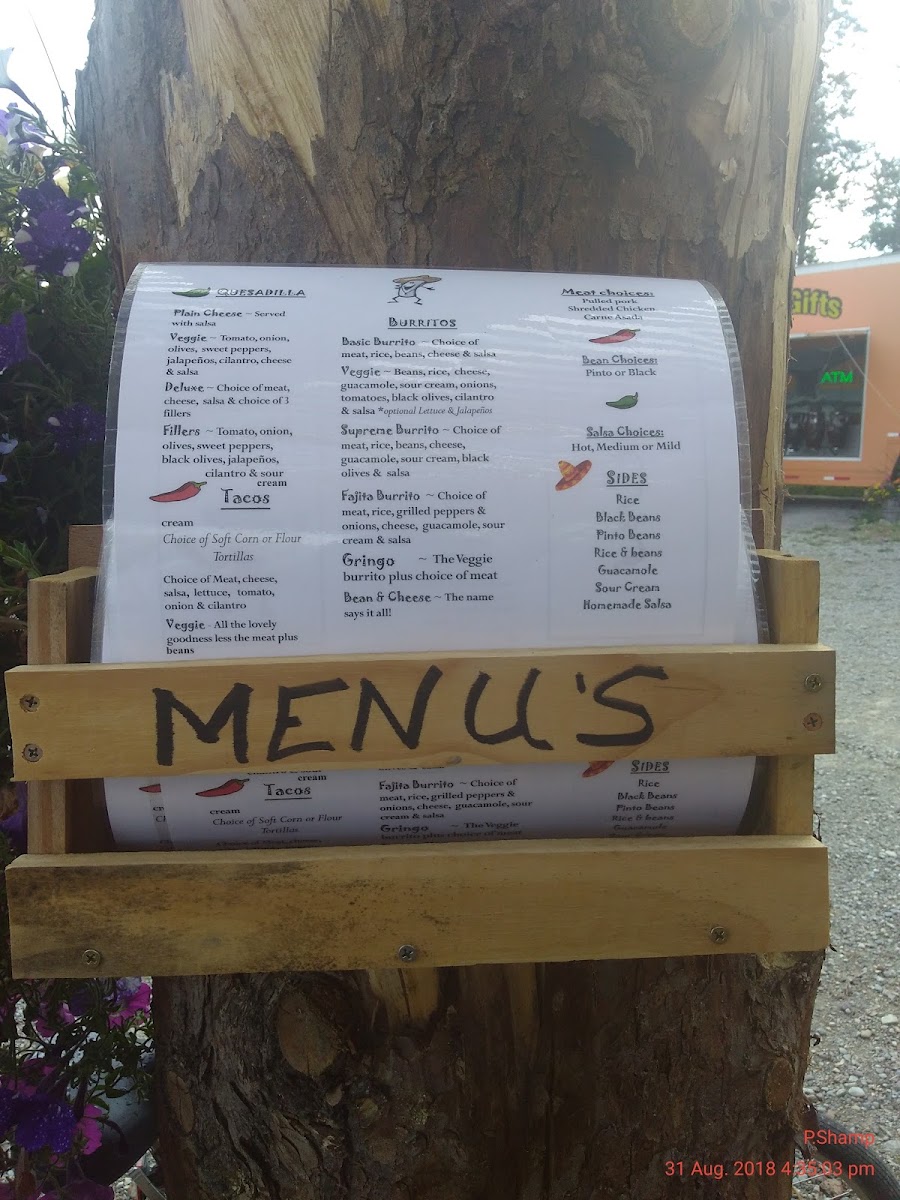 QUESADILLA
Plain Cheese ~ Served
with salsa
Veggie ~ Tomato, onion,
olives, sweet peppers,
jalapeños, cilantro, cheese
& salsa
Deluxe ~ Choice of meat,
cheese, salsa & choice of 3
fillers
Fillers ~ Tomato, onion,
olives, sweet peppers,
black olives, jalapeños,
cilantro & sour
cream
Tacos
cream
Choice of Soft Corn or Flour
Tortillas
Choice of Meat, cheese,
salsa, lettuce, tomato,
onion & cilantro
Veggie - All the lovely
goodness less the meat plus
beans
BURRITOS
Basic Burrito ~ Choice of
meat, rice, beans, cheese & salsa
Veggie ~ Beans, rice, cheese,
guacamole, sour cream, onions,
tomatoes, black olives, cilantro
& salsa *optional Lettuce & Jalapeños
Supreme Burrito ~ Choice of
meat, rice, beans, cheese,
guacamole, sour cream, black
olives & salsa
Fajita Burrito ~ Choice of
meat, rice, grilled peppers &
onions, cheese, guacamole, sour
cream & salsa
Gringo ~ The Veggie
burrito plus choice of meat
Bean & Cheese ~ The name
says it all!
Meat choices:
Pulled pork
Shredded Chicken
Carne Asada
Bean Choices:
Pinto or Black
Salsa Choices:
Hot, Medium or Mild
SIDES
Rice
Black Beans
Pinto Beans
Rice & beans
Guacamole
Sour Cream
Homemade Salsa
Gifts
ATM
MENU'S
cream
Tacos
cream
Choice of Soft Corn or Flour
Tortillas
Fajita Burrito ~ Choice of
meat, rice, grilled peppers &
onions, cheese, guacamole, sour
cream & salsa
Gringo ~ The Veggie
burrito plus choice of meat
SIDES
Rice
Black Beans
Pinto Beans
Rice & beans
Guacamole
PShamp
31 Aug. 2018 4:35:03 pm